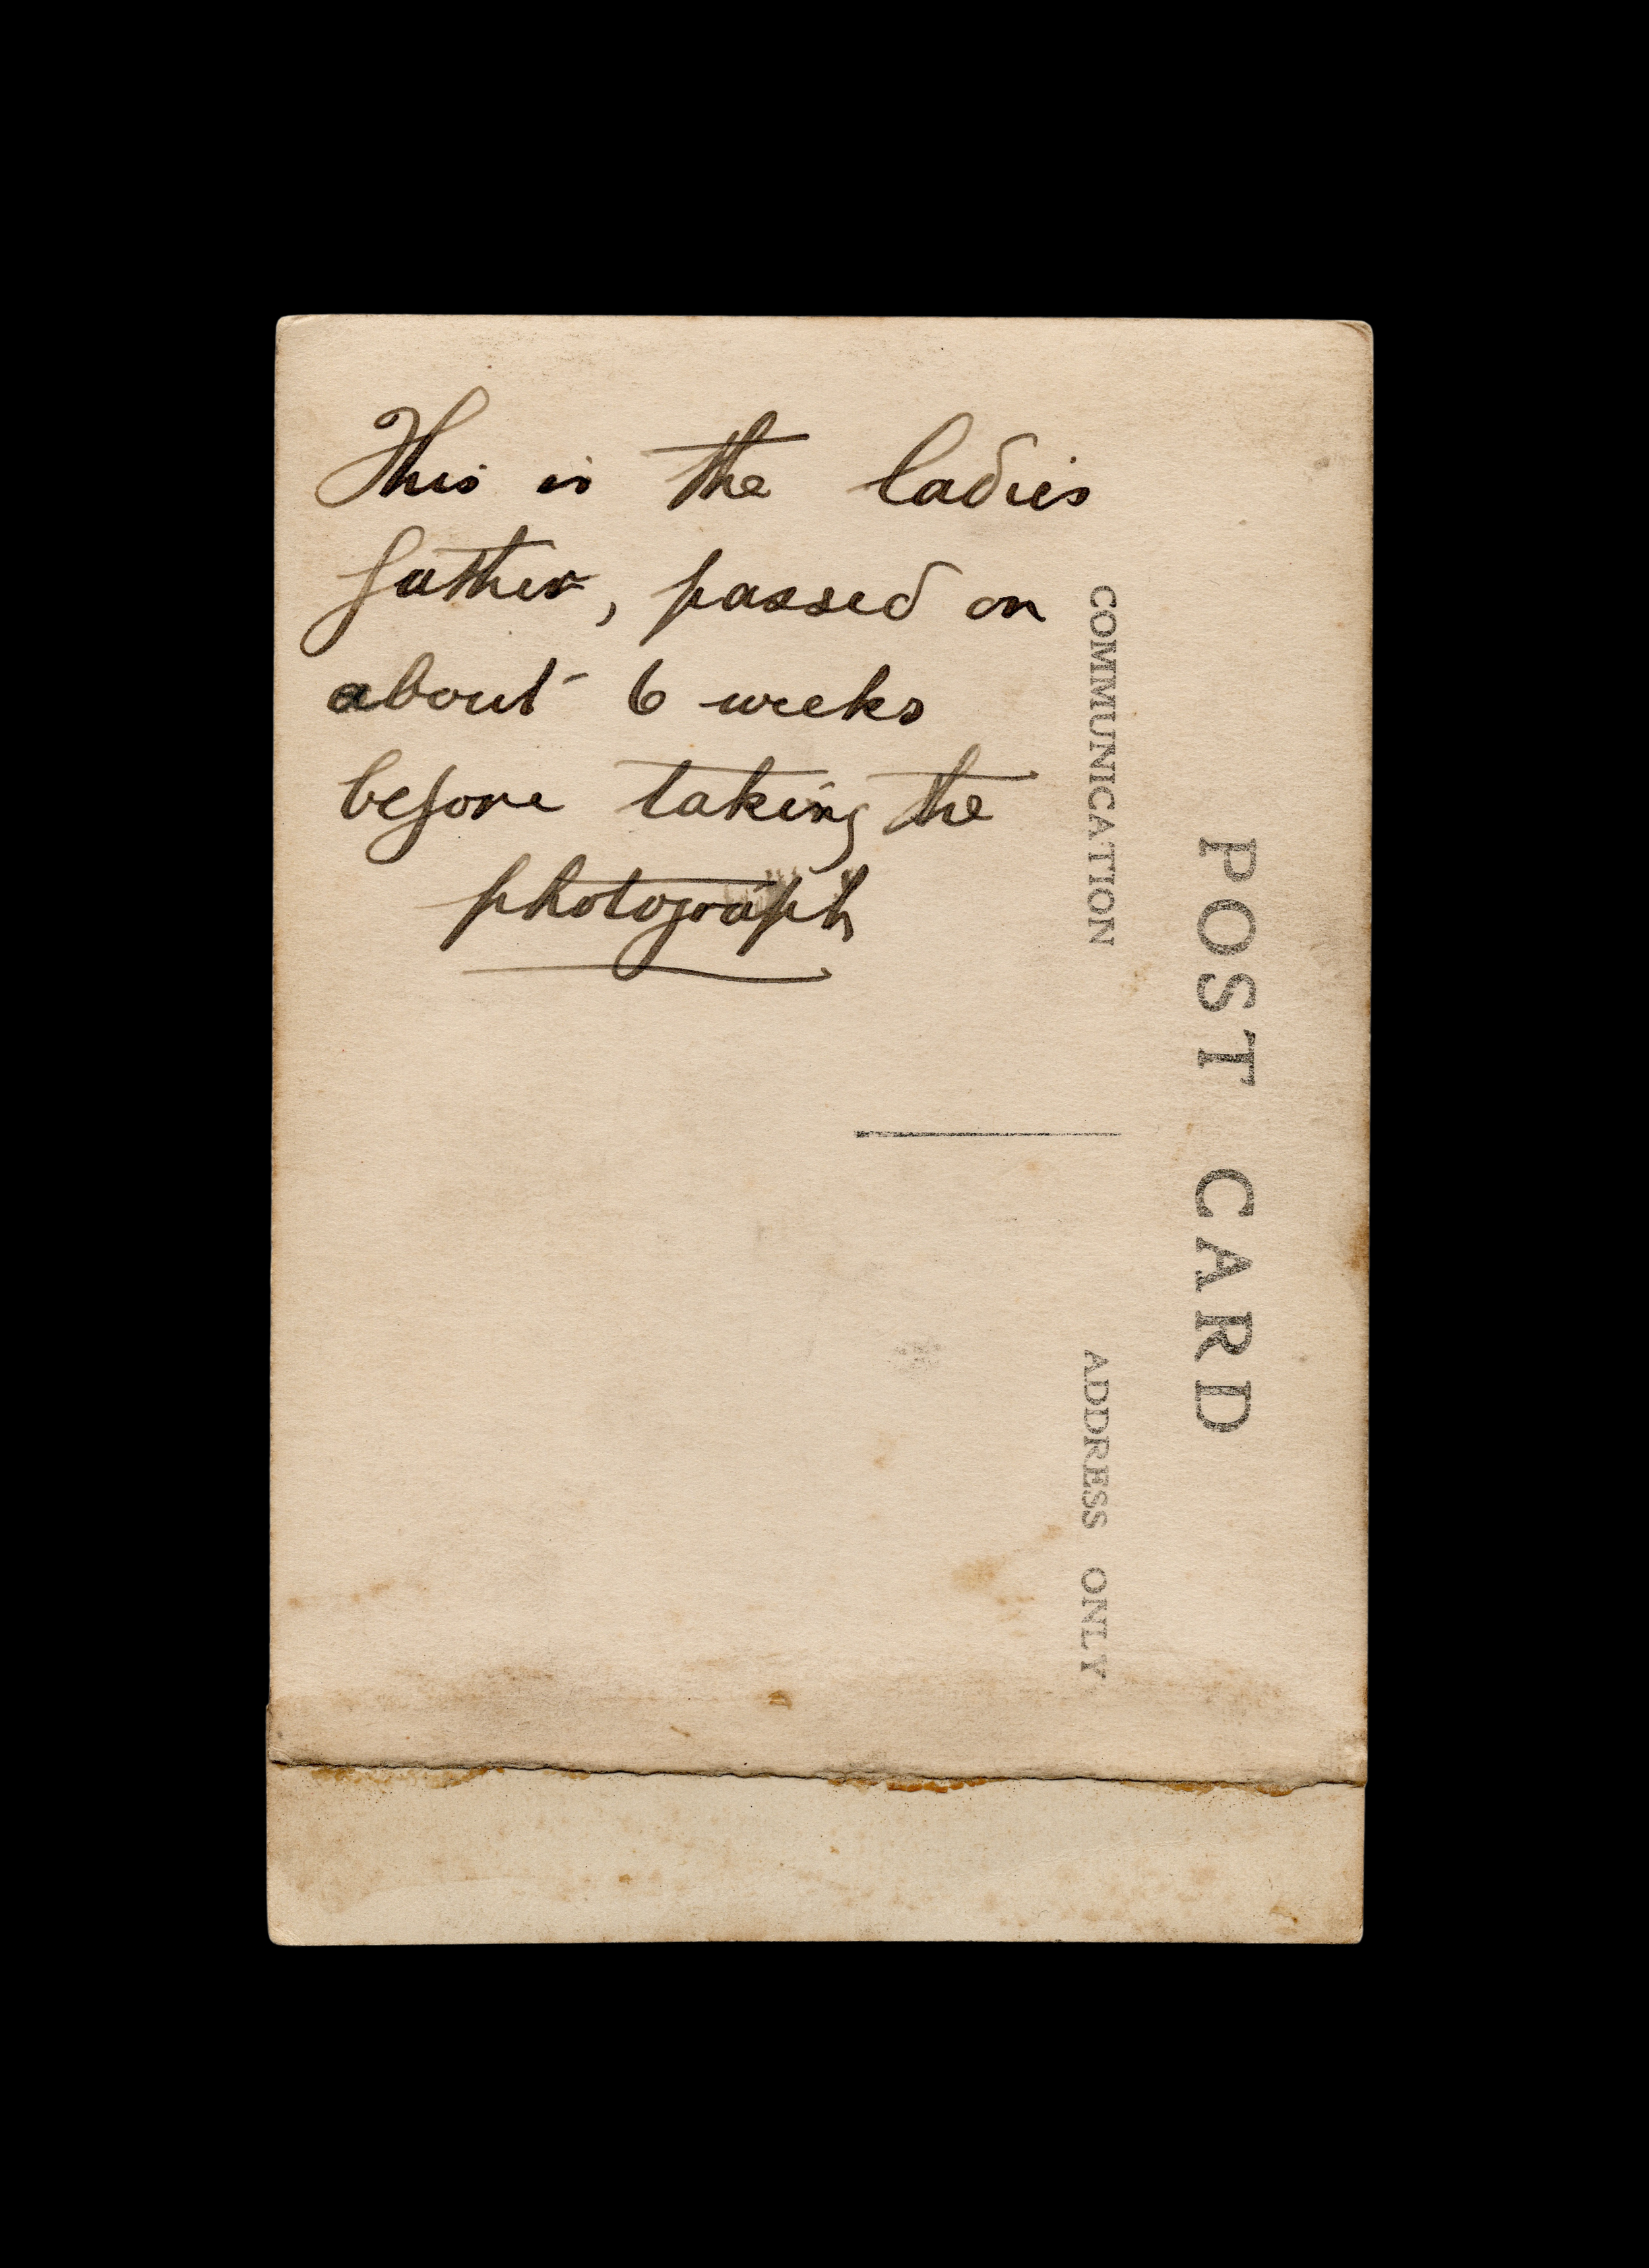 This is the ladies
father, passed on
about 6 weeks
before taking the
photograph
POST CARD
COMMUNICATION
ADDRESS ONLY